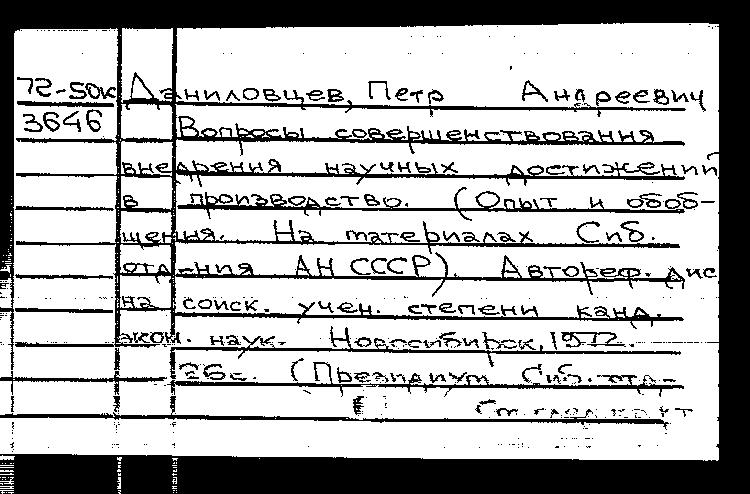 72-50к Даниловцев, Петр Андреевич
3646 Вопросы совершенствования
внедрения научных достижений
в производство. (Опыт и обоб-
щения. На материалах Сиб.
отд-ния АН СССР). Автореф. дис
на соиск. учен. степени канд.
экон. наук. Новосибирск, 1972.
26с. (Президиум Сиб. отд-
См. след карт